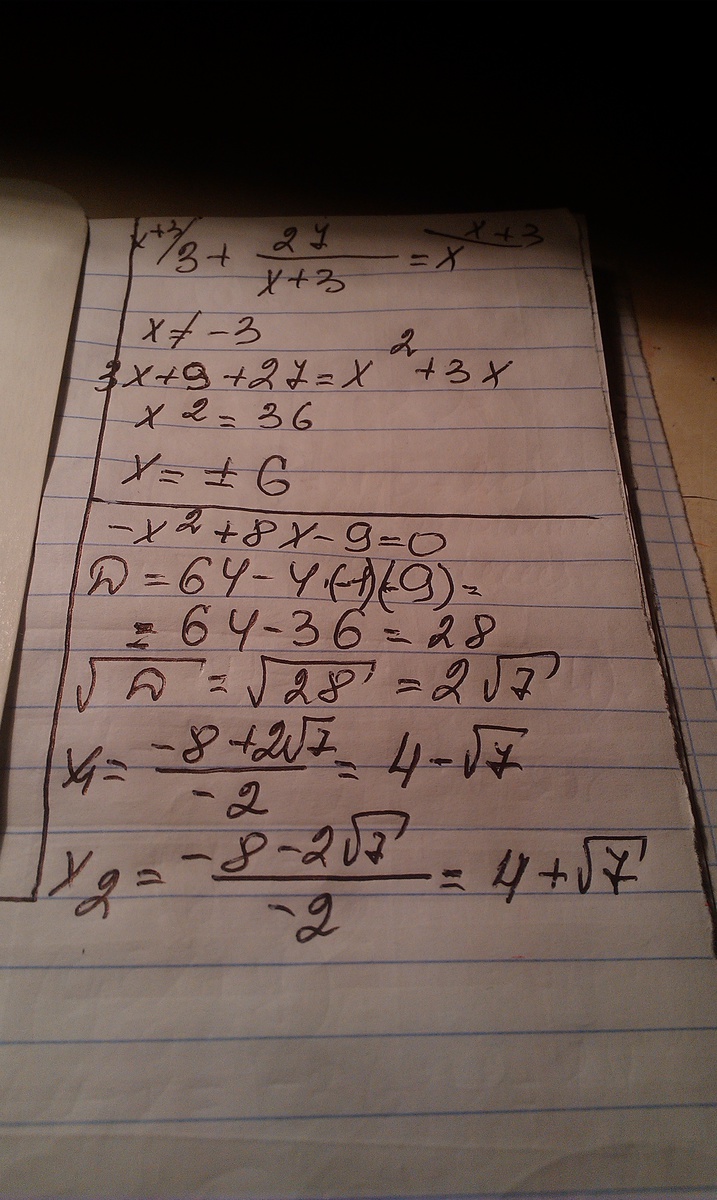 x+3/ 3 + 27/(x+3) = x \x+3
x ≠ -3
3x+9+27=x²+3x
x²=36
x=±6
-x²+8x-9=0
D=64-4·(-1)(-9)=
=64-36=28
√D=√28=2√7
x₁=(-8+2√7)/(-2)=4-√7
x₂=(-8-2√7)/(-2)=4+√7